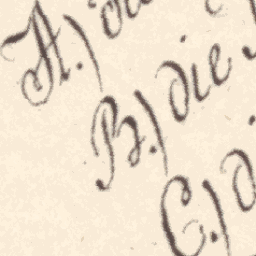 A.)
B.) die
C.)